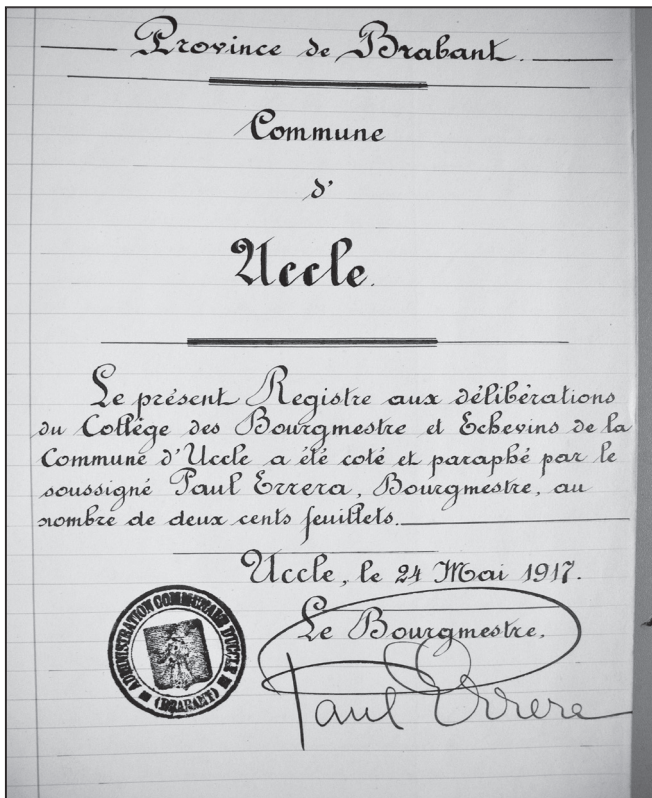 Province de Brabant.
Commune
d'
Uccle.
Le présent Registre aux délibérations
du Collège des Bourgmestre et Echevins de la
Commune d'Uccle a été coté et paraphé par le
soussigné Paul Errera, Bourgmestre, au
nombre de deux cents feuillets.
Uccle, le 24 Mai 1917.
Le Bourgmestre,
ADMINISTRATION COMMUNALE D'UCCLE
(BRABANT)
Paul Errera